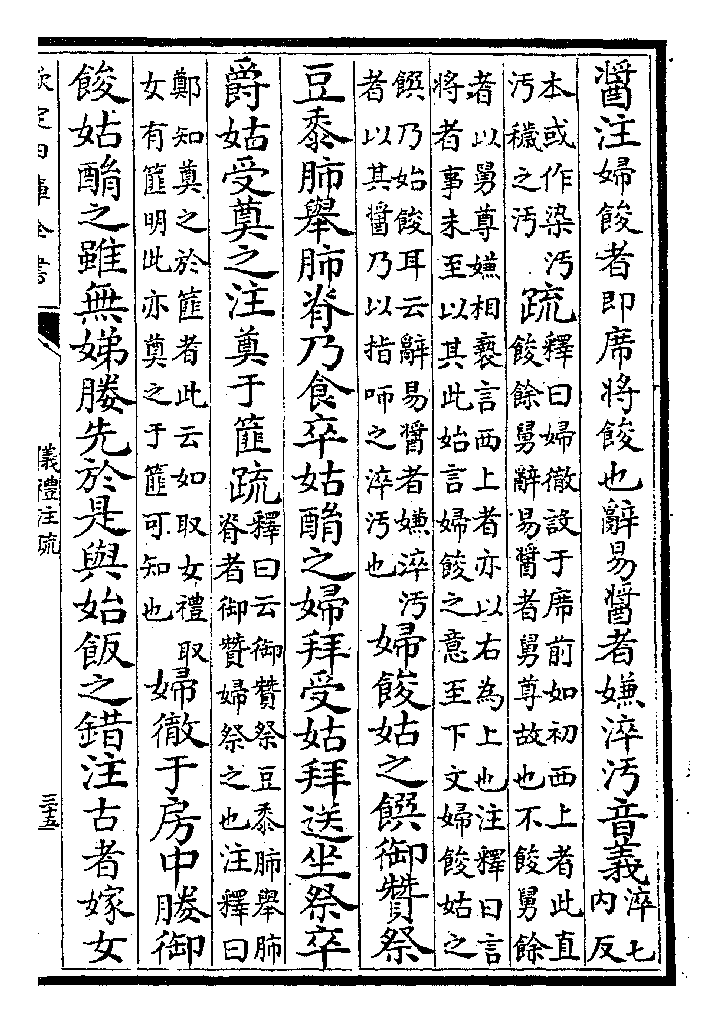 醬注婦餕者即席將餕也辭易醬者嫌淬汚音義淬七
内反
本或作染汚
汚穢之汚
疏釋曰婦徹設于席前如初西上者此直
餕餘舅辭易醬者舅尊故也不餕舅餘
者以舅尊嫌相褻言西上者亦以右為上也注釋曰言
將者事未至以其此始言婦餕之意至下文婦餕姑之
饌乃始餕耳云辭易醬者嫌淬汚
者以其醬乃以指咂之淬汚也
婦餕姑之饌御贊祭
豆黍肺舉肺脊乃食卒姑酳之婦拜受姑拜送坐祭卒
爵姑受奠之注奠于篚疏釋曰云御贊祭豆黍肺舉肺
脊者御贊婦祭之也注釋曰
鄭知奠之於篚者此云如取女禮取
女有篚明此亦奠之于篚可知也
婦徹于房中媵御
餕姑酳之雖無娣媵先於是與始飯之錯注古者嫁女
欽定四庫全書
儀禮注疏
三十五